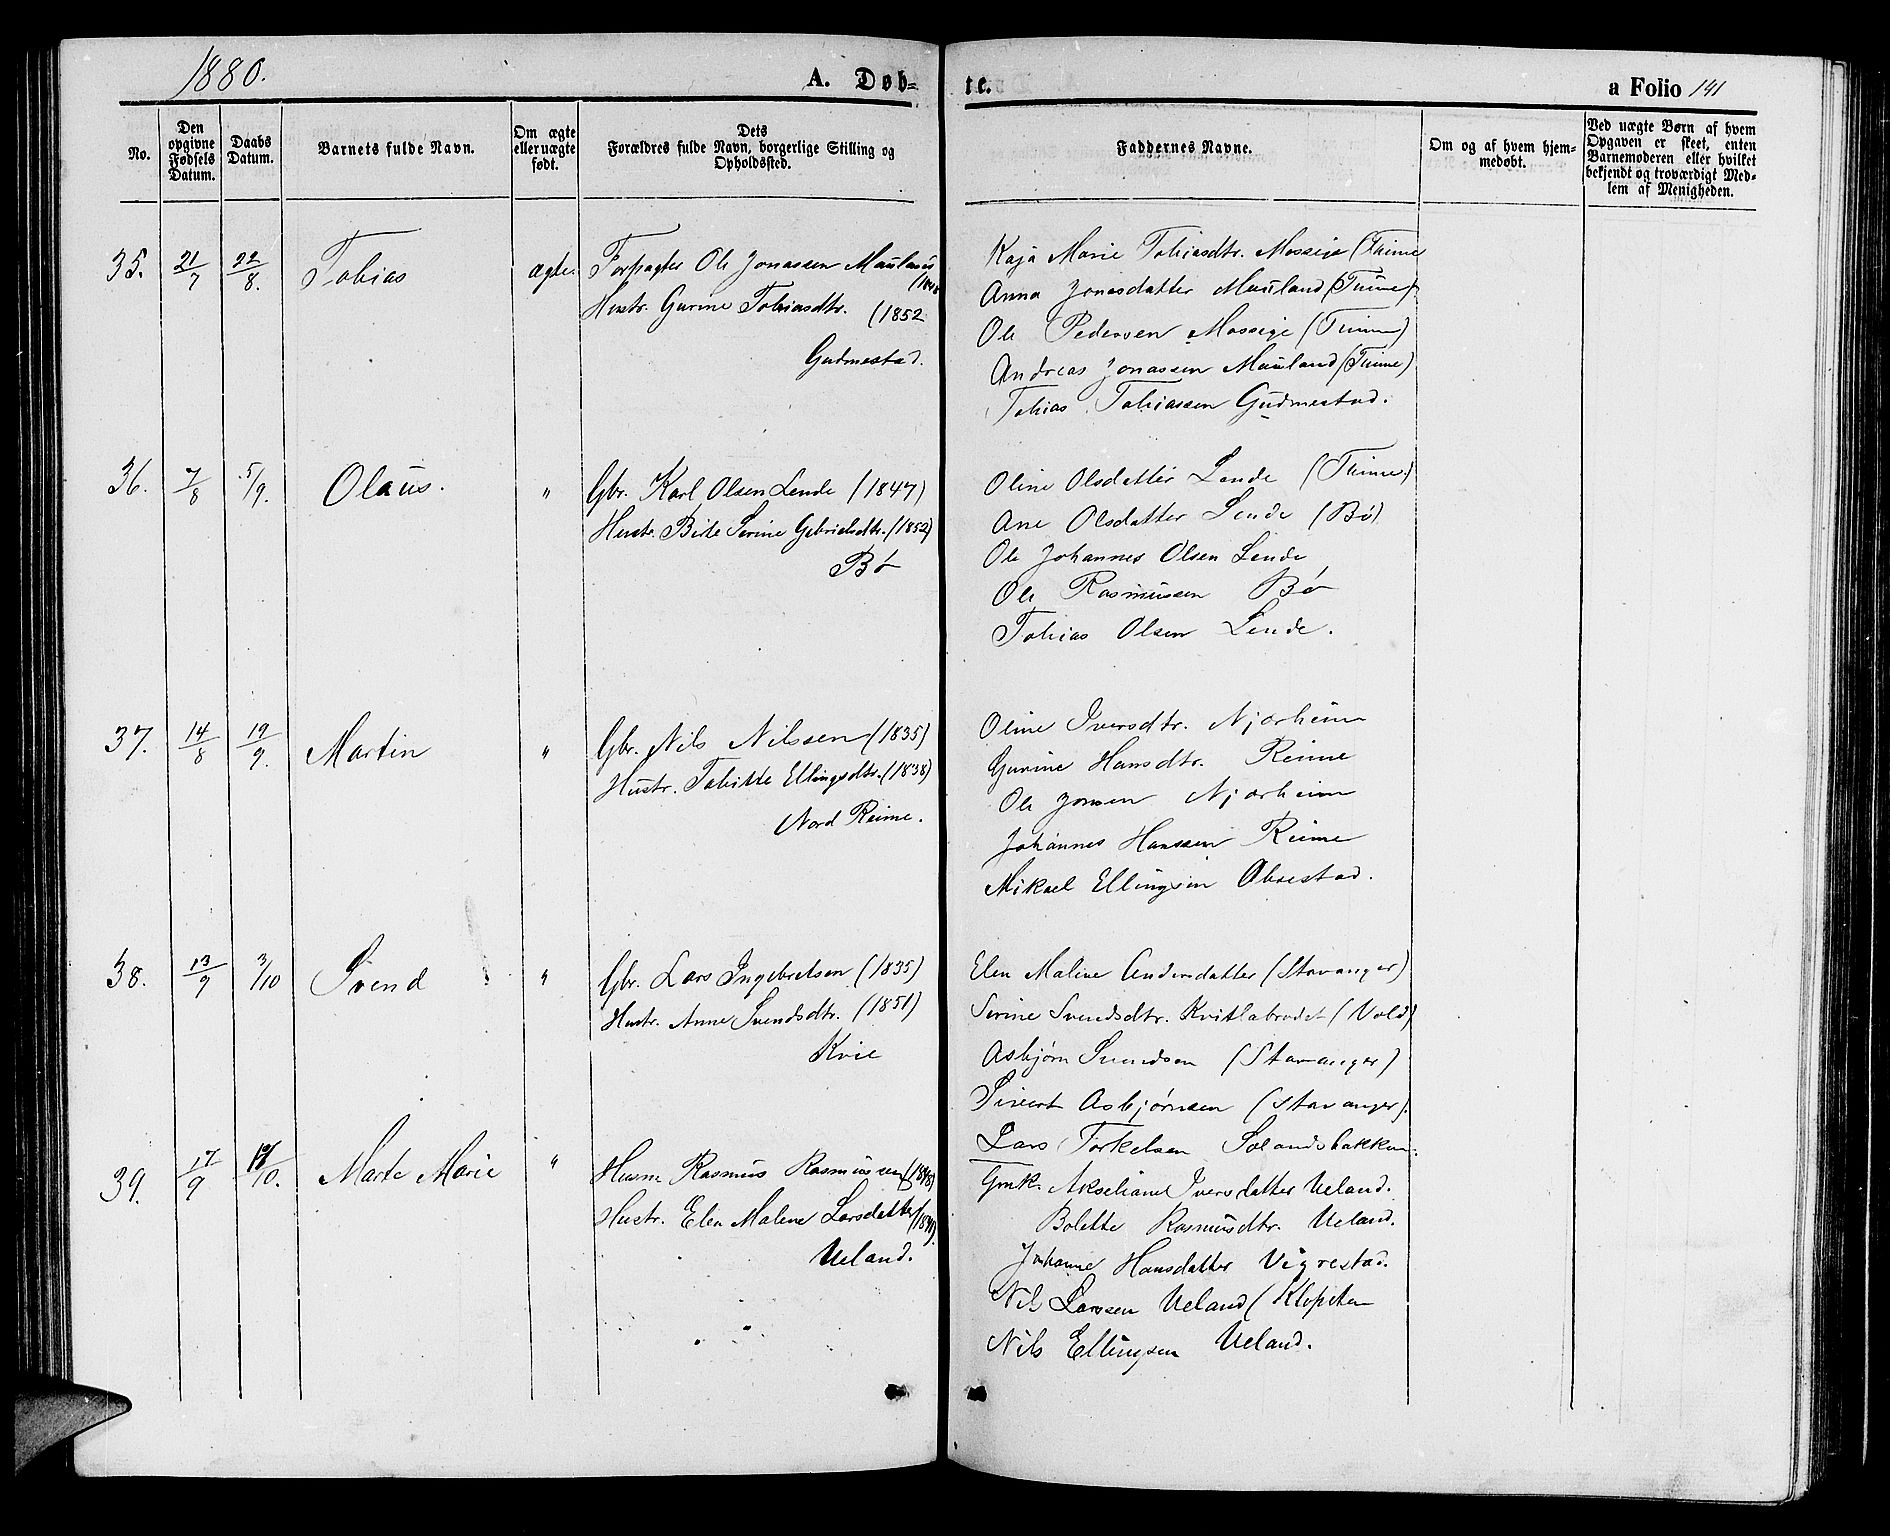 1880.
A. Døb-
te.
a Folio 141
No.
Den opgivne Fødsels Datum.
Daabs Datum.
Barnets fulde Navn.
Om ægte eller uægte født.
Dets Forældres fulde Navn, borgerlige Stilling og Opholdssted.
Faddernes Navne.
Om og af hvem hjem-
medøbt.
Ved uægte Børn af hvem
Opgaven er skeet, enten
Barnemoderen eller hvilket
bekjendt og troværdigt Med-
lem af Menigheden.
35. 21/7 22/8. Tobias ægte. Forpagter Ole Jonassen Mauland
Hustr. Gurine Tobiasdtr. (1852
Gudmestad.
Kaja Marie Tobiasdtr. Mossige (Thime
Anna Jonasdatter Mauland (Thime)
Ole Pedersen Mossige (Thime)
Andreas Jonassen Mauland (Thime)
Tobias Tobiassen Gudmestad.
36. 7/8 5/9. Olaus. " Gbr. Karl Olsen Lende (1847)
Hustr. Birte Serine Gabrielsdtr. (1852)
Bø
Oline Olsdatter Lende (Thime.)
Ane Olsdatter Lende (Bø)
Ole Johannes Olsen Lende
Ole Rasmussen Bø
Tobias Olsen Lende.
37. 14/8 19/9. Martin " Gbr. Nils Nilssen (1835)
Hustr. Tabitte Ellingsdtr. (1838)
Nord Reime.
Oline Iversdtr. Njærheim
Gurine Hansdtr. Reime
Ole Jonsen Njærheim
Johannes Hanssen Reime
Mikael Ellingsen Obrestad.
38. 13/9 3/10 Svend " Gbr. Lars Ingebretsen (1835)
Hustr. Anne Svendsdtr. (1851)
Kvie
Elen Maline Andersdatter (Stavanger)
Serine Svendsdtr. Kvitlabrodet (Vold)
Asbjørn Svendsen (Stavanger)
Sivert Asbjørnsen (Stavanger).
Lars Torkelsen Solandsbakken.
39. 17/9 /10. Marte Marie " Husm. Rasmus Rasmussen
Hustr. Elen Malene Larsdatter
Ueland.
Gmk. Akseliane Iversdatter Ueland.
Bolette Rasmusdtr. Ueland.
Johanne Hansdatter Vigrestad.
Nils Larssen Ueland (Klepste
Nils Ellingsen Ueland.